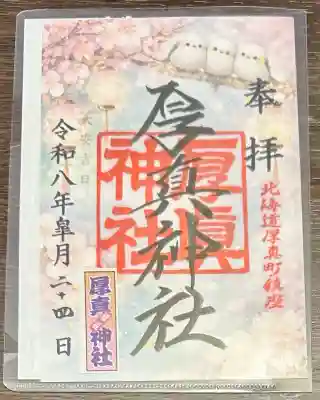 奉拝
北海道厚真町鎮座
厚真神社
厚真神社
大安吉日
令和八年皐月二十四日
厚真神社